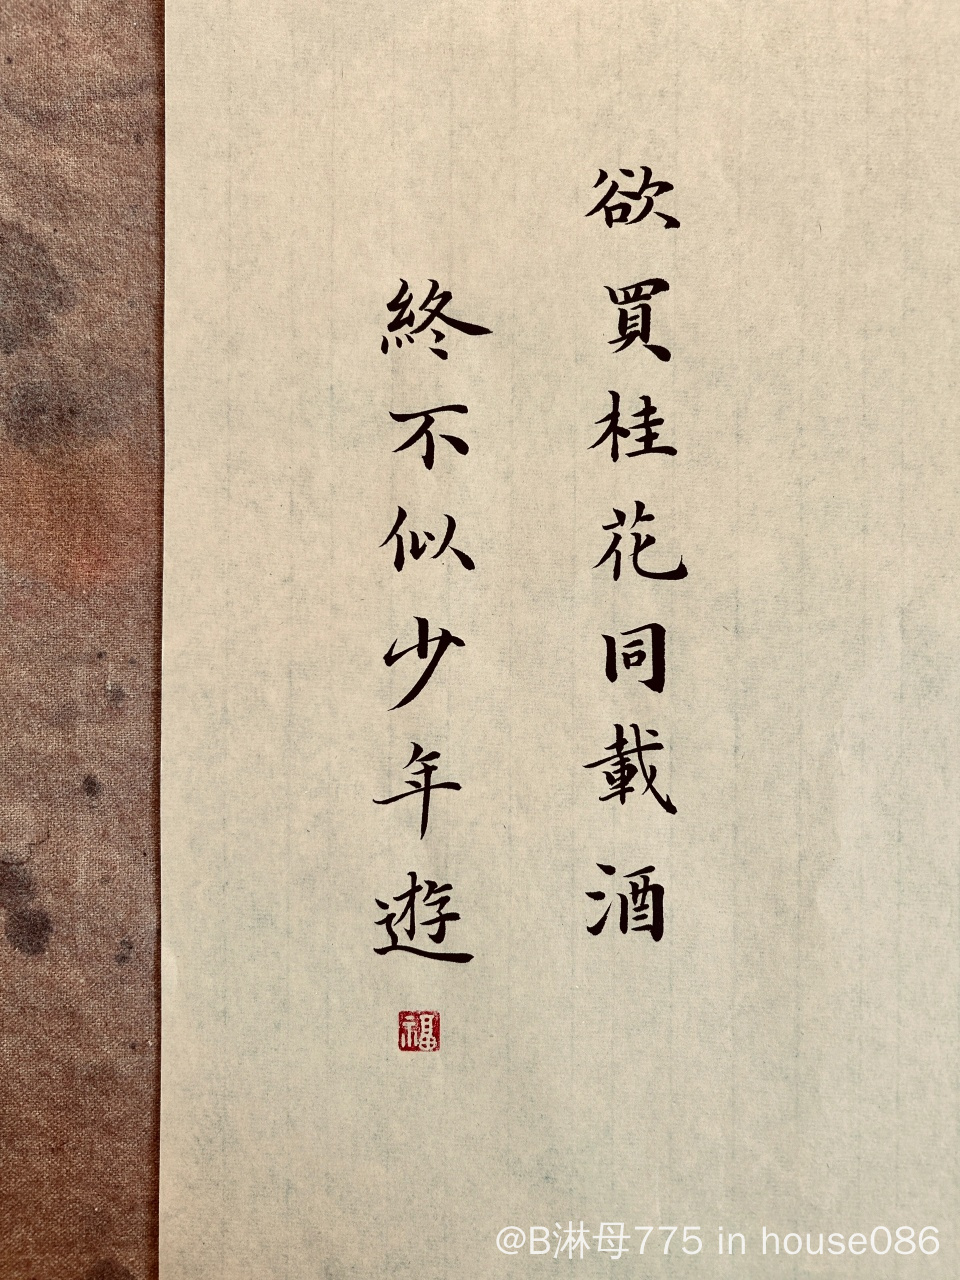 欲買桂花同載酒
終不似少年遊
福
@B淋母775 in house086